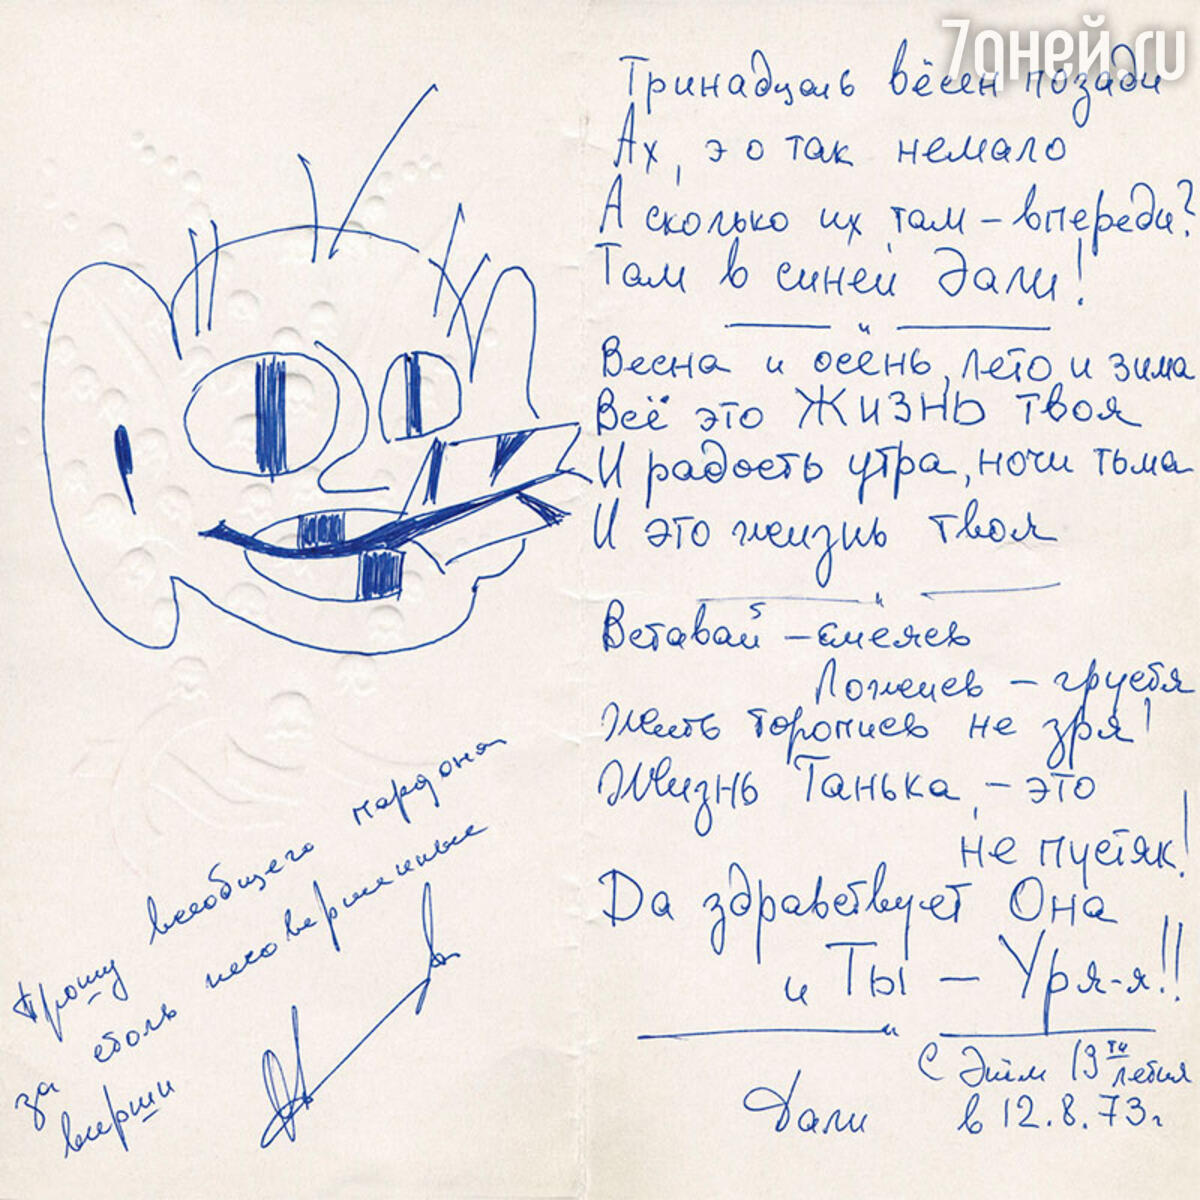 7дней.ru
Тринадцать вёсен позади
Ах, э о так немало
А сколько их там – впереди?
Там в синей Дали!
Весна и осень, лето и зима
Всё это ЖИЗНЬ твоя
И радость утра, ночи тьма
И это жизнь твоя
Вставай – смеясь
Ложись – грустя
Жить торопись не зря!
Жизнь Танька, – это
не пустяк!
Да здравствует Она
и Ты – Уря-я!!
С Днём 13ти летия
Дали в 12.8.73г
Прошу всеобщего пардона
за столь несовершенные
вирши